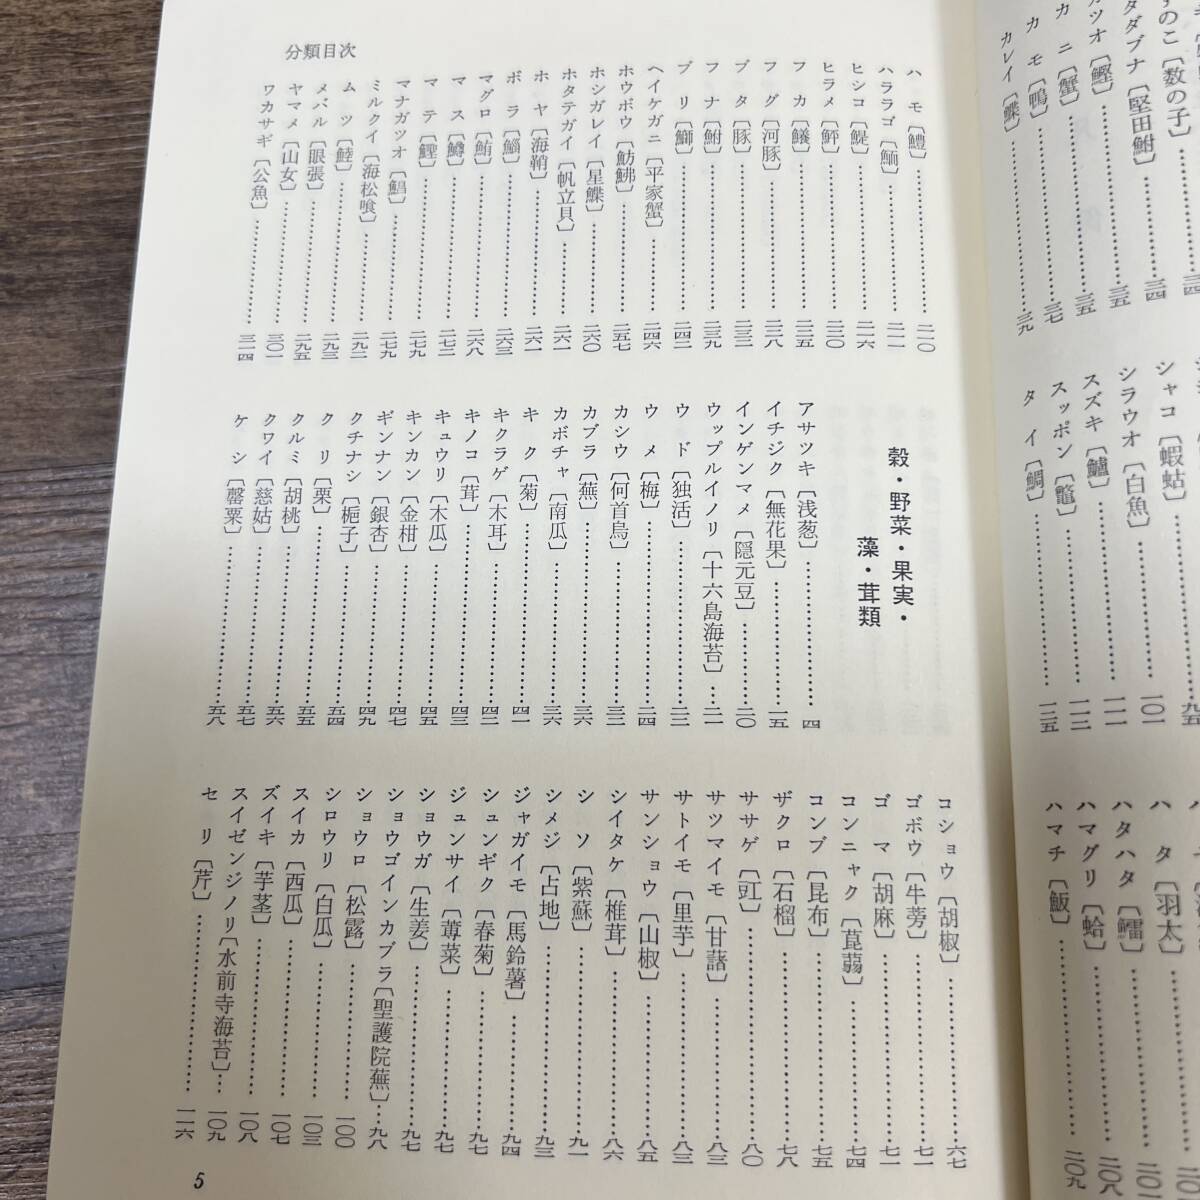 ずのこ〔数の子〕
タダブナ〔堅田鮒〕……三四
カツオ〔鰹〕……三五
カニ〔蟹〕……三五
カモ〔鴨〕……三七
カレイ〔鰈〕……三九
シャコ〔蝦蛄〕……九五
シラウオ〔白魚〕……一〇一
スズキ〔鱸〕……一一一
スッポン〔鼈〕……一一二
タイ〔鯛〕……一三五
ハタ〔羽太〕
ハタハタ〔鱩〕
ハマグリ〔蛤〕……二〇八
ハマチ〔魬〕……二〇九
分類目次
ハモ〔鱧〕……二一〇
ハララゴ〔鮞〕……二一一
ヒシコ〔鯷〕……二一六
ヒラメ〔鮃〕……二二〇
フカ〔鱶〕……二二五
フグ〔河豚〕……二二八
ブタ〔豚〕……二三二
フナ〔鮒〕……二三九
ブリ〔鰤〕……二四二
ヘイケガニ〔平家蟹〕……二四六
ホウボウ〔魴鮄〕……二五七
ホシガレイ〔星鰈〕……二六〇
ホタテガイ〔帆立貝〕……二六一
ホヤ〔海鞘〕……二六一
ボラ〔鯔〕……二六三
マグロ〔鮪〕……二六八
マス〔鱒〕……二七二
マテ〔鏗〕……二七九
マナガツオ〔鯧〕……二七九
ミルクイ〔海松喰〕……二九二
ムツ〔鯥〕……二九二
メバル〔眼張〕……二九三
ヤマメ〔山女〕……三〇一
ワカサギ〔公魚〕……三一四
穀・野菜・果実・
藻・茸類
アサツキ〔浅葱〕……四
イチジク〔無花果〕……一五
インゲンマメ〔隠元豆〕……二〇
ウップルイノリ〔十六島海苔〕……二一
ウド〔独活〕……二三
ウメ〔梅〕……二四
カシウ〔何首烏〕……三二
カブラ〔蕪〕……三六
カボチャ〔南瓜〕……三六
キク〔菊〕……四一
キクラゲ〔木耳〕……四二
キノコ〔茸〕……四三
キュウリ〔木瓜〕……四五
キンカン〔金柑〕……四七
ギンナン〔銀杏〕……四九
クチナシ〔梔子〕……五四
クリ〔栗〕……五五
クルミ〔胡桃〕……五六
クワイ〔慈姑〕……五七
ケシ〔罌粟〕……五八
コショウ〔胡椒〕……六七
ゴボウ〔牛蒡〕……七一
ゴマ〔胡麻〕……七一
コンニャク〔菎蒻〕……七四
コンブ〔昆布〕……七五
ザクロ〔石榴〕……七八
ササゲ〔豇〕……八〇
サツマイモ〔甘藷〕……八三
サトイモ〔里芋〕……八三
サンショウ〔山椒〕……八五
シイタケ〔椎茸〕……八六
シソ〔紫蘇〕……九一
シメジ〔占地〕……九三
ジャガイモ〔馬鈴薯〕……九四
シュンギク〔春菊〕……九七
ジュンサイ〔蓴菜〕……九七
ショウガ〔生姜〕……九七
ショウゴインカブラ〔聖護院蕪〕……九八
ショウロ〔松露〕……一〇〇
シロウリ〔白瓜〕……一〇三
スイカ〔西瓜〕……一〇七
ズイキ〔芋茎〕……一〇八
スイゼンジノリ〔水前寺海苔〕……一〇九
セリ〔芹〕……一一六
5